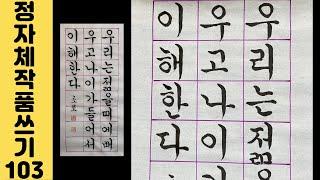 정자체작품쓰기
103
우리는젊을때에배
우고나이가들어서
이해한다
우리는젊
우고나이
이해한다